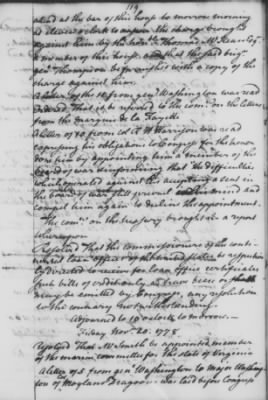 119
attend at the bar of this house to morrow morning
at eleven o'clock to answer the charge brought
against him by the honble Thomas McKean Esqr
a member of this house and that the said brigr
genl Thompson be furnished with a copy of the
charge against him.
A letter of the 16 from genl Washington was read
Ordered That it be referred to the come on the letters
from the marquis de la Fayette
A letter of 10 from col R. H. Harrison was read
expressing his obligations to Congress for the honor
done him by appointing him a member of the
board of war & informing that the difficulties
which operated against his accepting a seat in the
board of war still prevent his mind and
compel him again to decline the appointment.
The come on the treasury brought in a report
Whereupon
Resolved That the Commissioners of the conti-
nental loan offices of the United States be respectively
directed to receive for loan office certificates
such bills of credit only as have been or
may be emitted by Congress, any resolution
to the contrary notwithstanding.
Adjourned to 10 o'clock to morrow.
Friday Novr 20. 1778
Resolved That Mr Smith be appointed member
of the marine committee for the state of Virginia
A letter of 5 from genl Washington to Major Washing-
ton of Moylan's Dragoons was laid before Congress